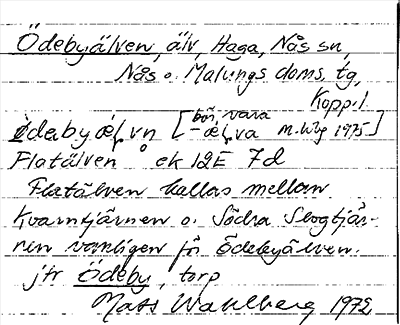 Ödebyälven, älv, Haga, Nås sn,
Nås o. Malungs doms. tg,
Koppl
ödebyæļvn [-æļva bör vara M. Wbg 1975]
Flatälven ek 12E 7d
Flatälven kallas mellan
Kvarntjärnen o. Södra Slogtjär-
nen vanligen för Ödebyälven.
jfr Ödeby, torp
Mats Wahlberg 1972